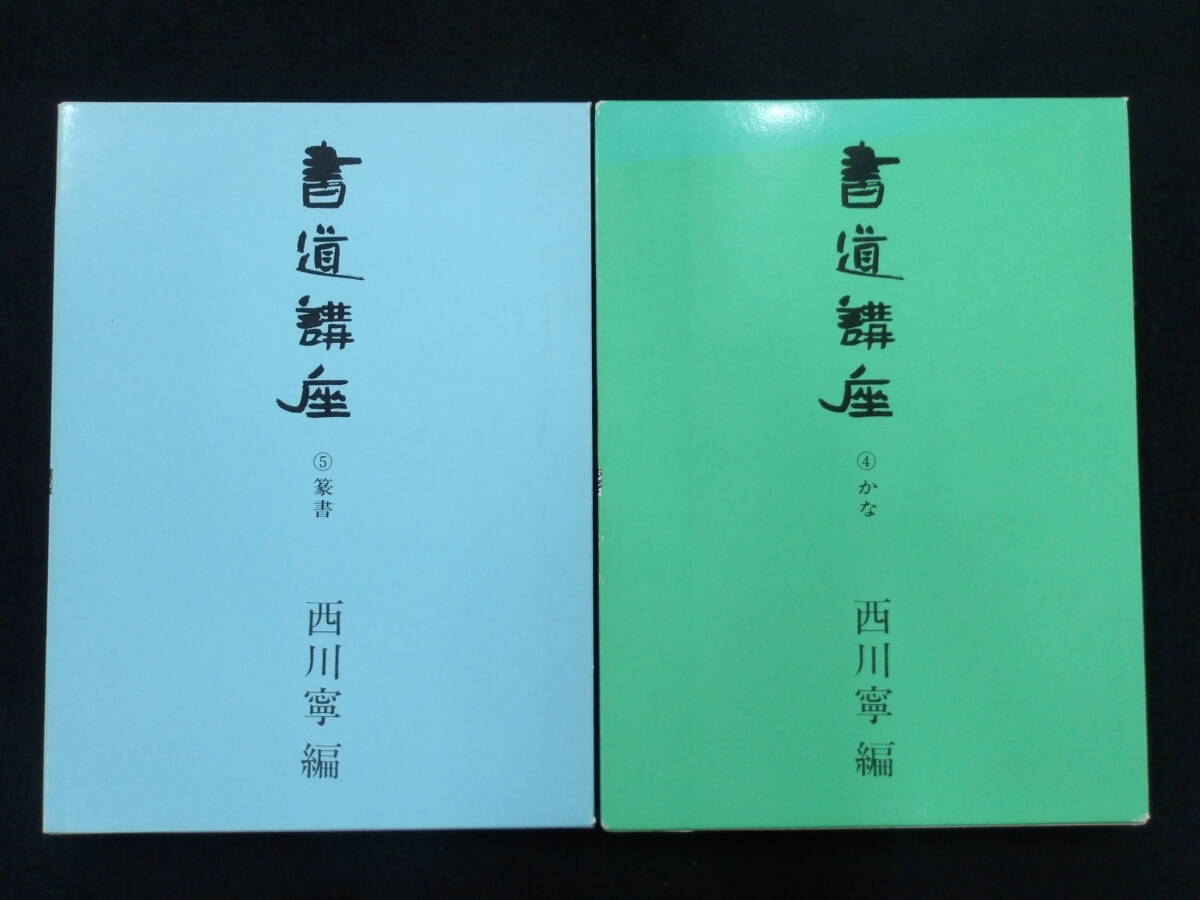 書道講座
⑤篆書
西川寧編
書道講座
④かな
西川寧編